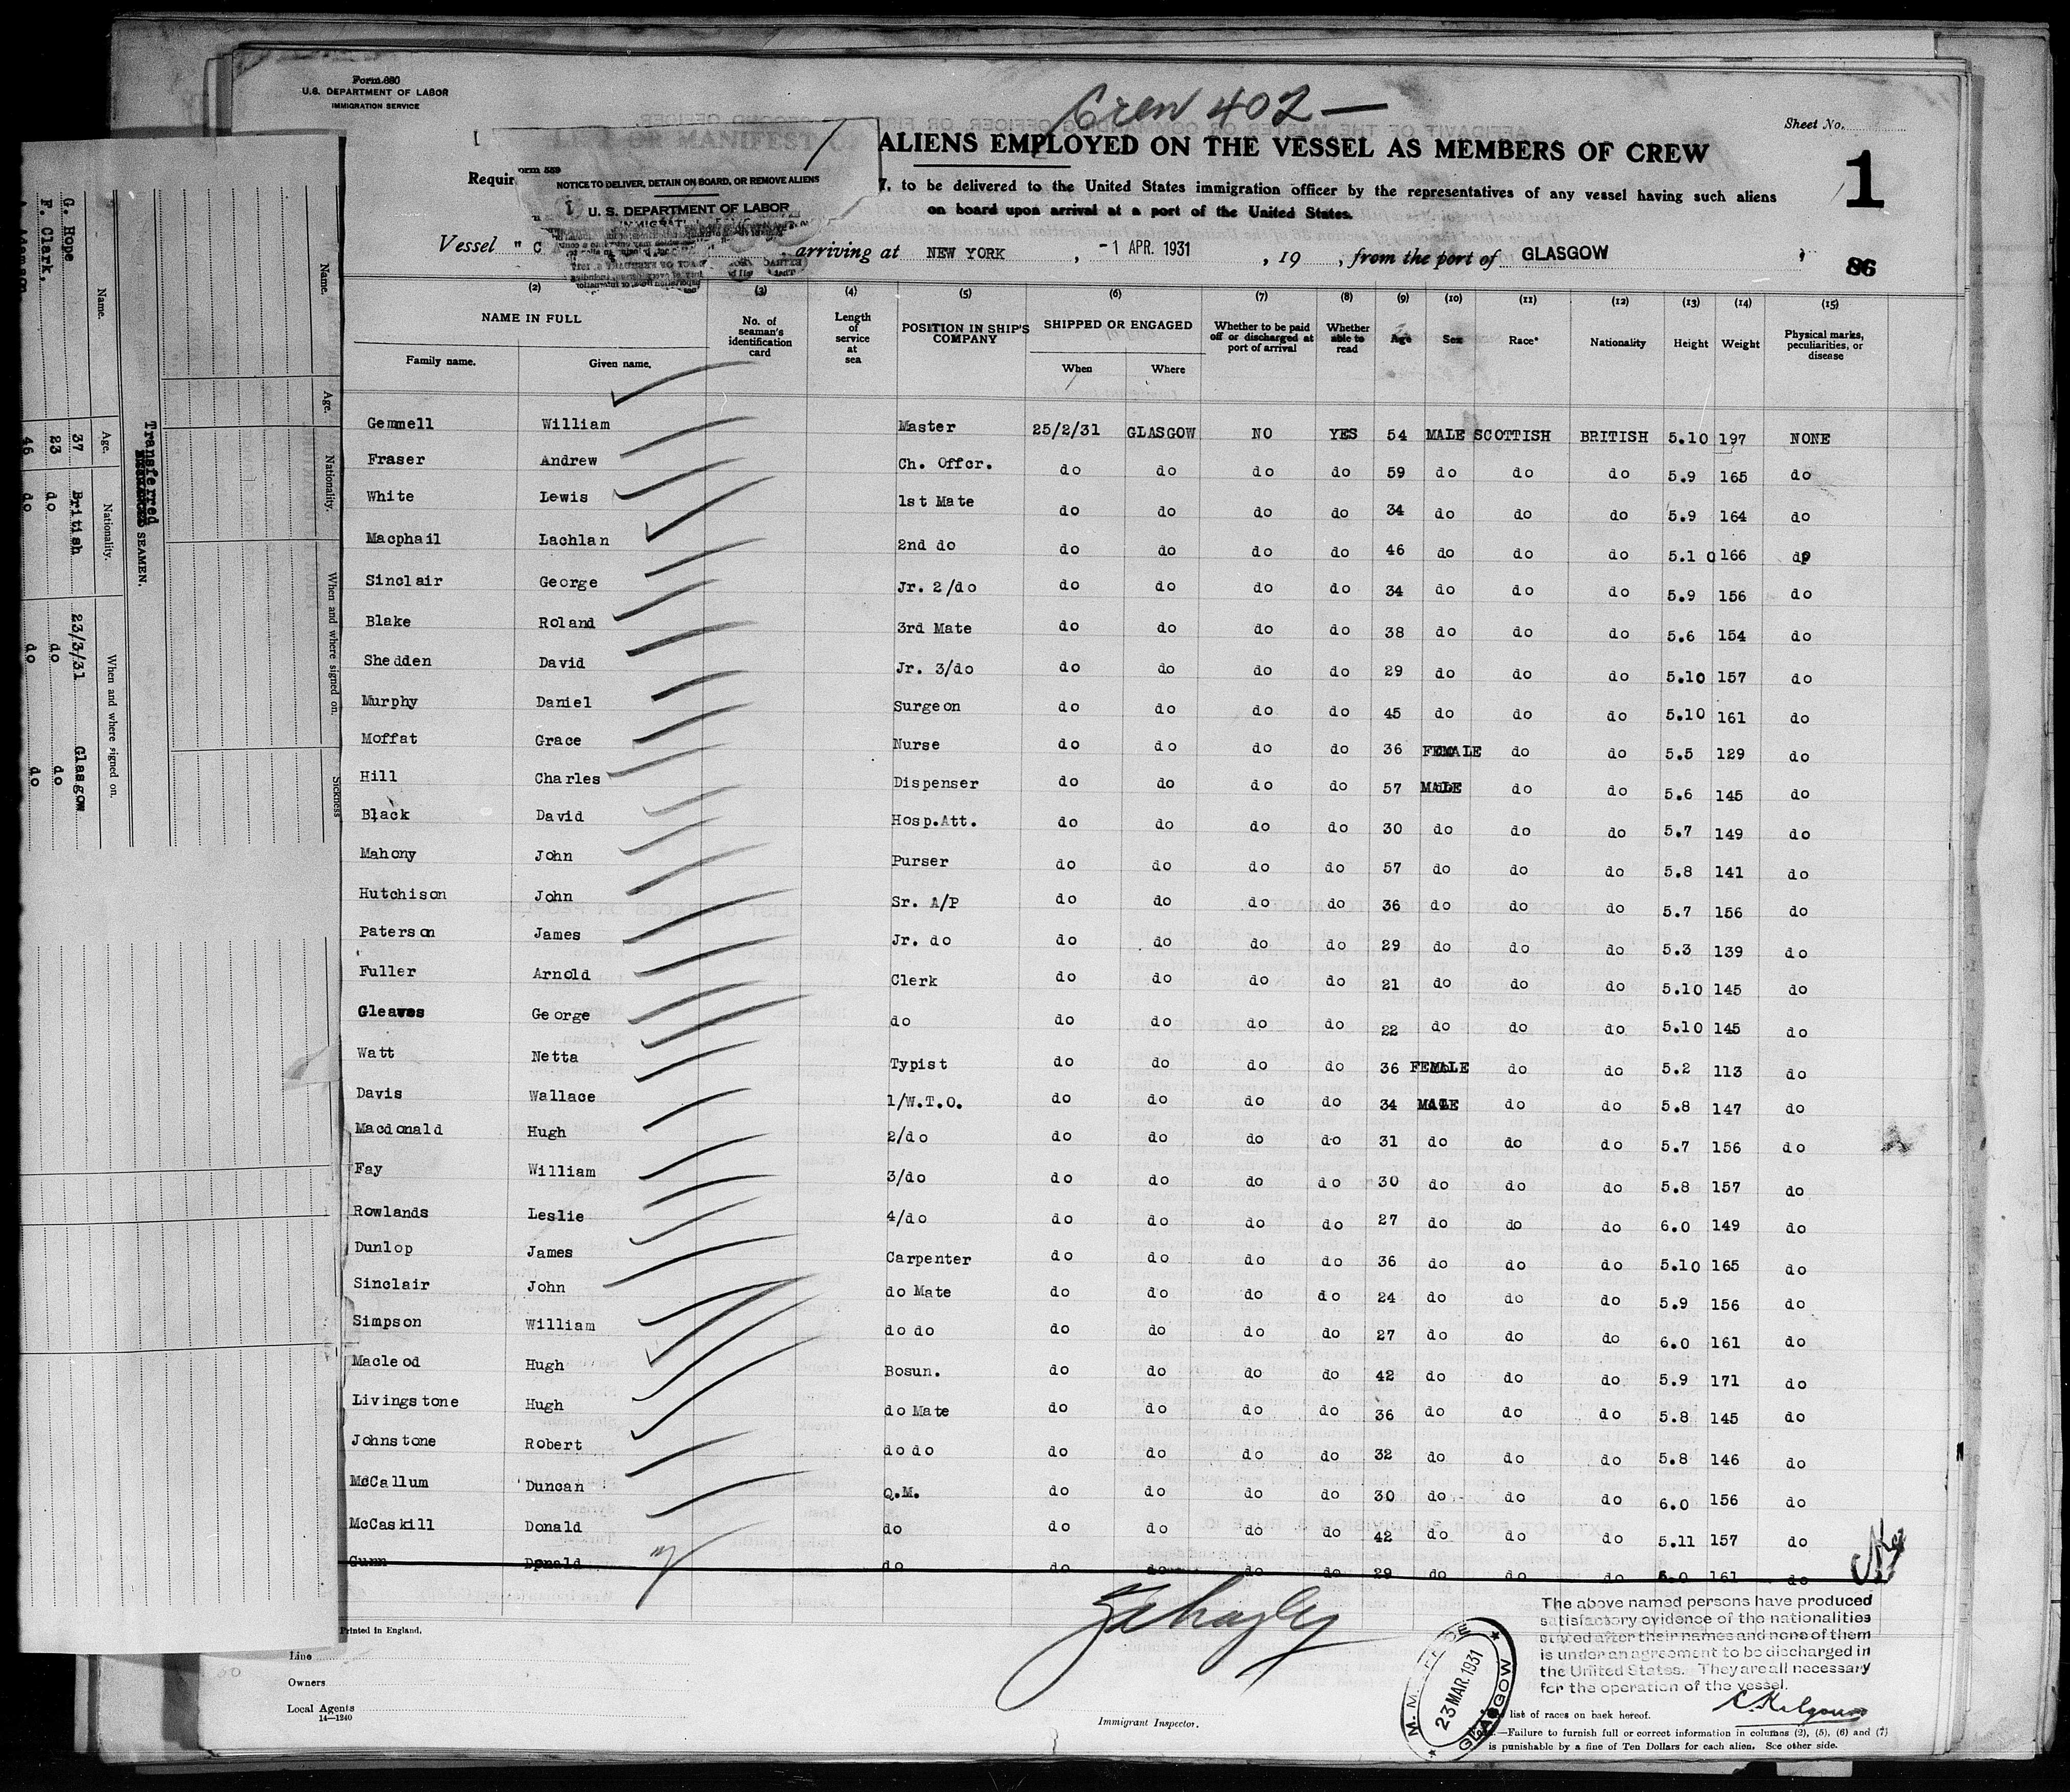 Form 680
U.S. DEPARTMENT OF LABOR
IMMIGRATION SERVICE
Crew 402 —
Sheet No.
LIST OR MANIFEST OF ALIENS EMPLOYED ON THE VESSEL AS MEMBERS OF CREW
1
Requir
7, to be delivered to the United States immigration officer by the representatives of any vessel having such aliens
on board upon arrival at a port of the United States.
orm 559
NOTICE TO DELIVER, DETAIN ON BOARD, OR REMOVE ALIENS
U. S. DEPARTMENT OF LABOR
Vessel " C arriving at NEW YORK , -1 APR. 1931 , 19 , from the port of GLASGOW
86
(2) (3) (4) (5) (6) (7) (8) (9) (10) (11) (12) (13) (14) (15)
NAME IN FULL
Family name. Given name. No. of seaman's identification card Length of service at sea POSITION IN SHIP'S COMPANY SHIPPED OR ENGAGED When Where Whether to be paid off or discharged at port of arrival Whether able to read Age Sex Race* Nationality Height Weight Physical marks, peculiarities, or disease
Gemmell William Master 25/2/31 GLASGOW NO YES 54 MALE SCOTTISH BRITISH 5.10 197 NONE
Fraser Andrew Ch. Offcr. do do do do 59 do do do 5.9 165 do
White Lewis 1st Mate do do do do 34 do do do 5.9 164 do
Macphail Lachlan 2nd do do do do do 46 do do do 5.1 0 166 do
Sinclair George Jr. 2/do do do do do 34 do do do 5.9 156 do
Blake Roland 3rd Mate do do do do 38 do do do 5.6 154 do
Shedden David Jr. 3/do do do do do 29 do do do 5.10 157 do
Murphy Daniel Surgeon do do do do 45 do do do 5.10 161 do
Moffat Grace Nurse do do do do 36 FEMALE do do 5.5 129 do
Hill Charles Dispenser do do do do 57 MALE do do 5.6 145 do
Black David Hosp.Att. do do do do 30 do do do 5.7 149 do
Mahony John Purser do do do do 57 do do do 5.8 141 do
Hutchison John Sr. A/P do do do do 36 do do do 5.7 156 do
Paterson James Jr. do do do do do 29 do do do 5.3 139 do
Fuller Arnold Clerk do do do do 21 do do do 5.10 145 do
Gleaves George do do do do do 22 do do do 5.10 145 do
Watt Netta Typist do do do do 36 FEMALE do do 5.2 113 do
Davis Wallace 1/W.T.O. do do do do 34 MALE do do 5.8 147 do
Macdonald Hugh 2/do do do do do 31 do do do 5.7 156 do
Fay William 3/do do do do do 30 do do do 5.8 157 do
Rowlands Leslie 4/do do do do do 27 do do do 6.0 149 do
Dunlop James Carpenter do do do do 36 do do do 5.10 165 do
Sinclair John do Mate do do do do 24 do do do 5.9 156 do
Simpson William do do do do do do 27 do do do 6.0 161 do
Macleod Hugh Bosun. do do do do 42 do do do 5.9 171 do
Livingstone Hugh do Mate do do do do 36 do do do 5.8 145 do
Johnstone Robert do do do do do do 32 do do do 5.8 146 do
McCallum Duncan Q.M. do do do do 30 do do do 6.0 156 do
McCaskill Donald do do do do do 42 do do do 5.11 157 do
Gunn Donald do do do do do 29 do do do 6.0 161 do
Printed in England.
Line
Owners
Local Agents
14—1240
Immigrant Inspector.
GLASGOW
23 MAR. 1931
The above named persons have produced
satisfactory evidence of the nationalities
stated after their names and none of them
is under an agreement to be discharged in
the United States. They are all necessary
for the operation of the vessel.
list of races on back hereof.
—Failure to furnish full or correct information in columns (2), (5), (6) and (7)
is punishable by a fine of Ten Dollars for each alien. See other side.
Name. Age. Nationality. When and where signed on. Sickness
Transferred
SEAMEN.
Name. Age. Nationality. When and where signed on.
G. Rope 37 British 23/3/31 Glasgow
F. Clark, 23 do do do
46 do do do